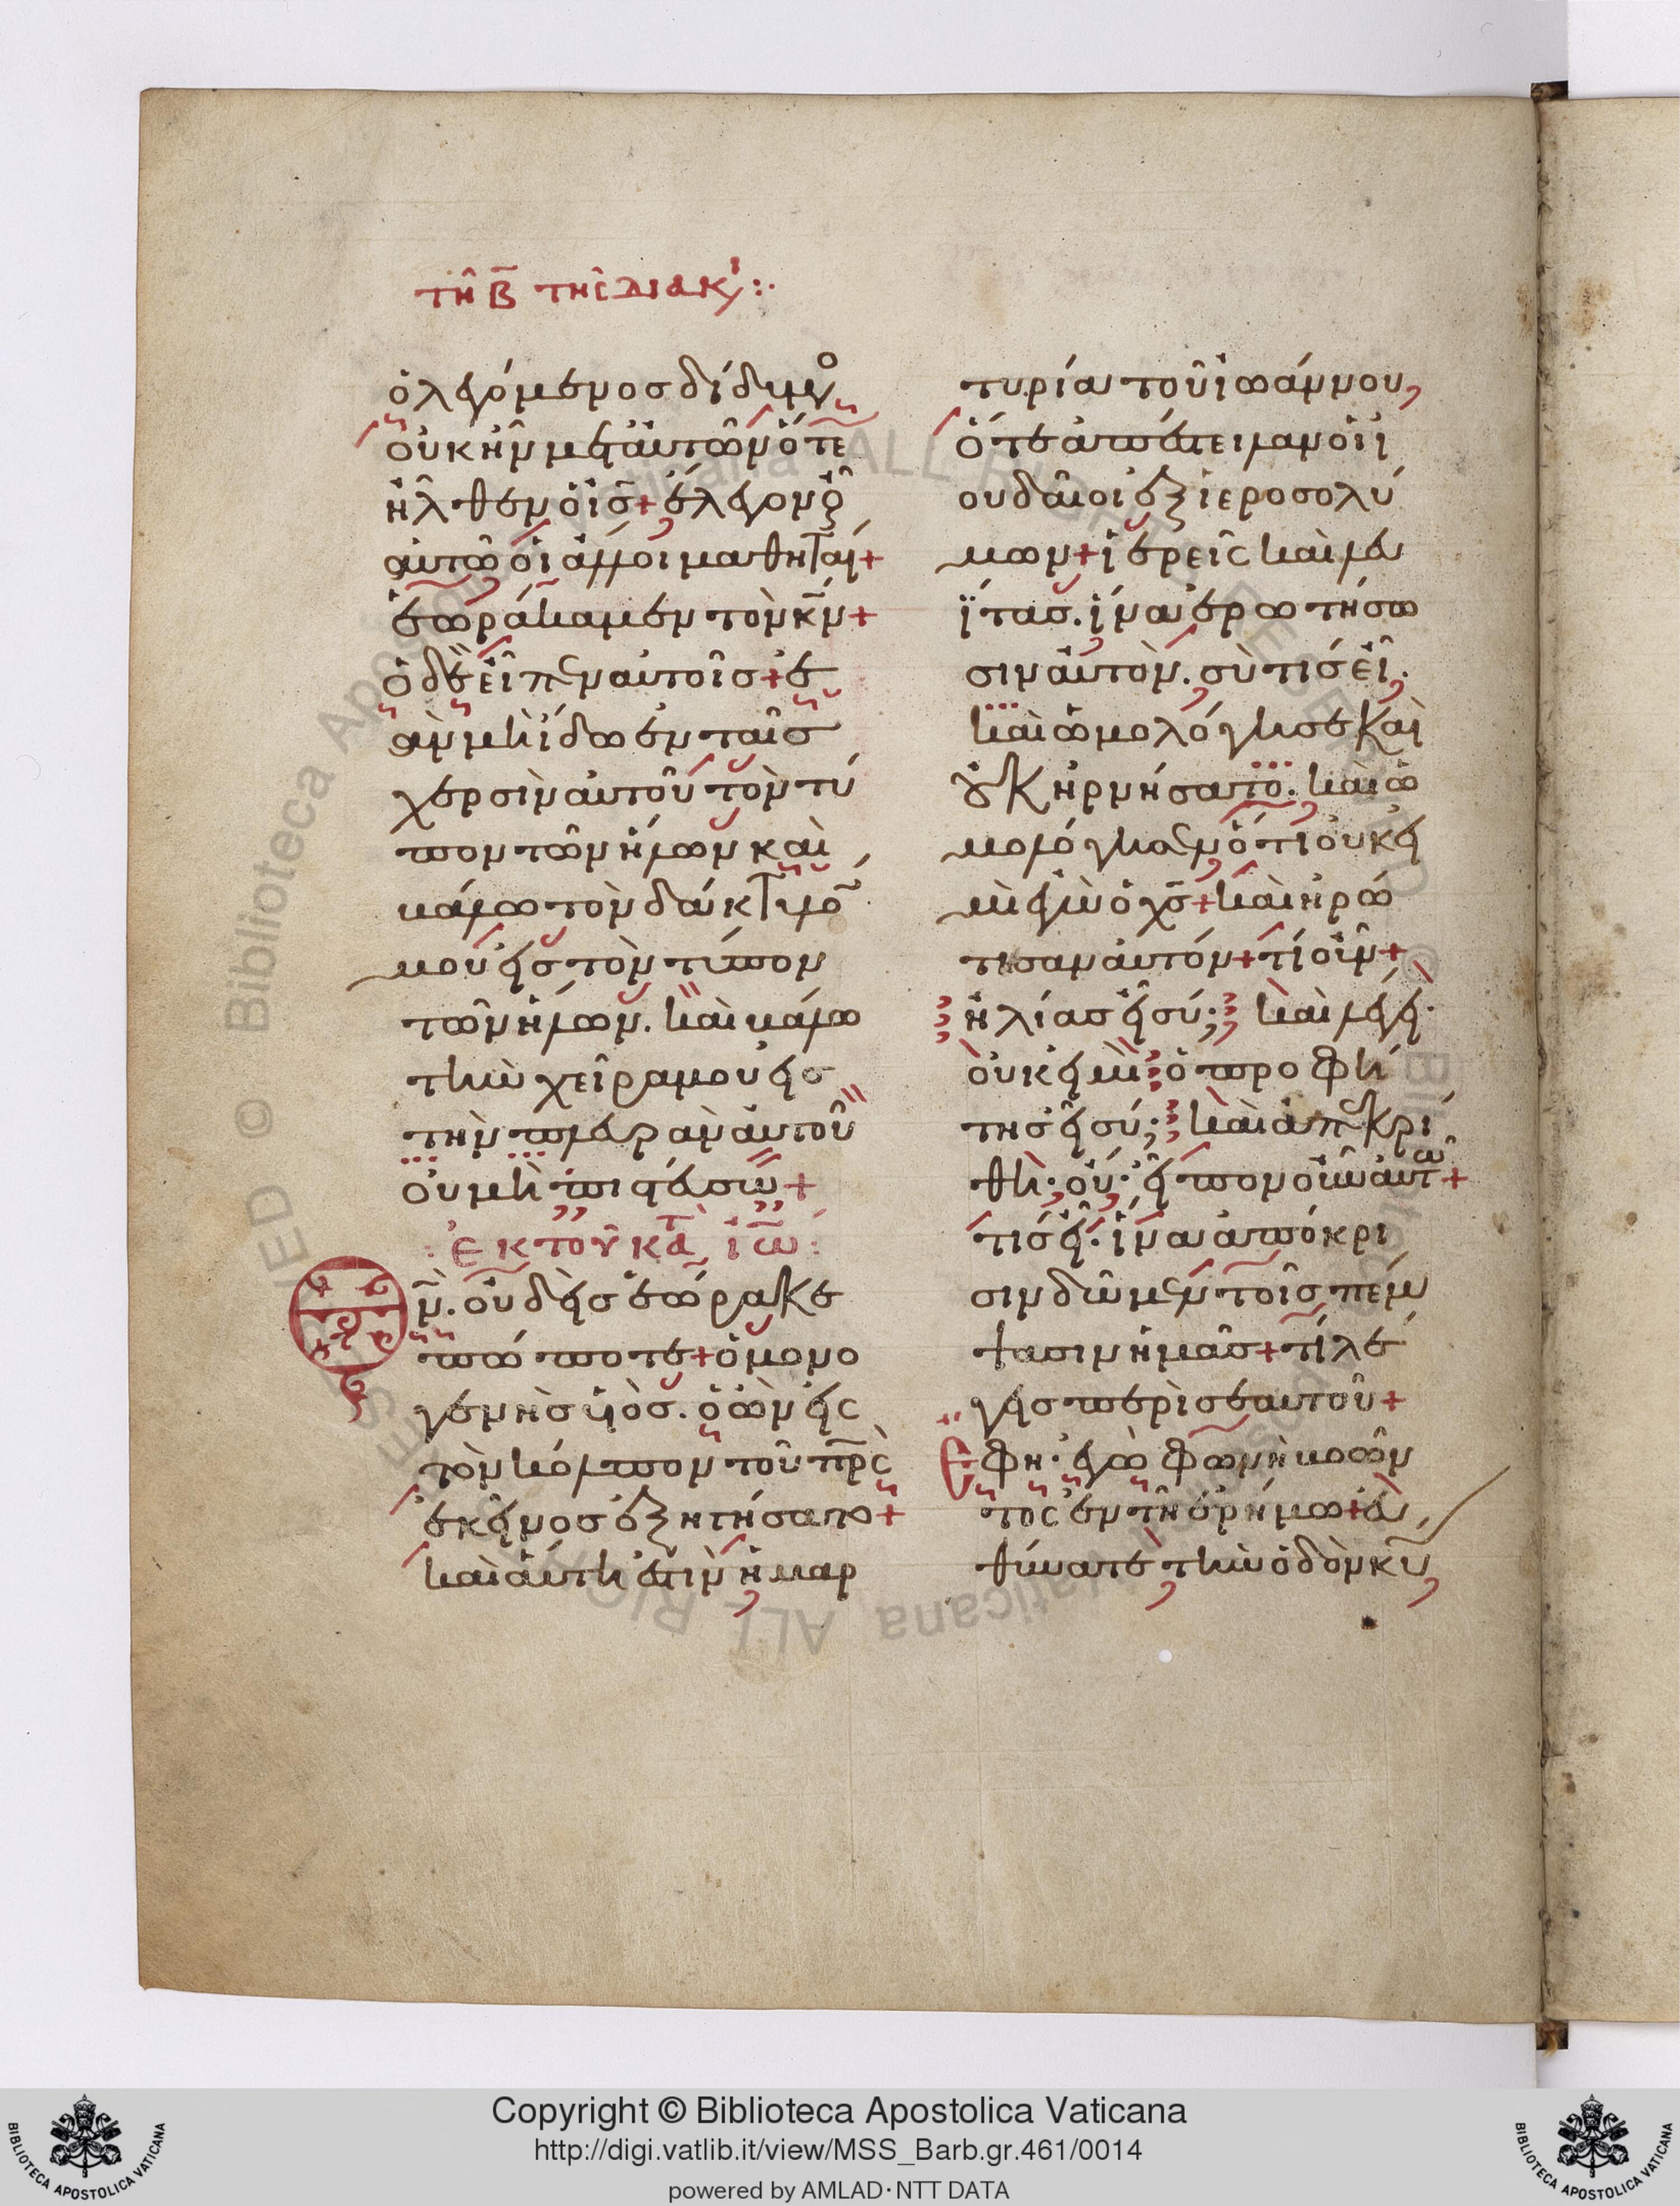 τῆ β τῆς διακι:·
ὁ λεγόμενοσ δίδυμο
οὐκ ἦν μετ αὐτῶν ὅτε
ἦλθεν ὁ ισ + ἔλεγον οὖ
αὐτῶ οἱ ἄλλοι μαθηταί +
ἑωράκαμεν τὸν κν +
ὁ δὲ εἶπεν αὐτοῖσ + ἐ
ὰν μὴ ἴδω ἐν ταῖσ
χερσὶν αὐτοῦ τὸν τύ
πον τῶν ἥλων καὶ
βάλω τὸν δάκτυλό
μου εἰσ τὸν τύπον
τῶν ἥλων. καὶ βάλω
τὴν χεῖρα μου εἰσ
τὴν πλευρὰν αὐτοῦ
οὐ μὴ πιστεύσω +
ἐκ τοῦ κατὰ ἰω:
Θν. οὐδεὶσ ἑώρακε
πώποτε + ὁ μονο
γενὴσ υἱὸσ. ὁ ὢν εἰς
τὸν κόλπον τοῦ πρς
ἐκεῖνοσ ἐξηγήσατο +
καὶ αὕτη ἐστὶν ἡ μαρ
τυρία τοῦ ἰωάννου,
ὅτε ἀπέστειλαν οἱ ἰ
ουδαῖοι ἐξ ἱεροσολύ
μων + ἱερεῖς καὶ λευ
ΐτασ. ἵνα ἐρωτήσω
σιν αὐτὸν. σὺ τίσ εἶ.
καὶ ὡμολόγησε καὶ
οὐκ ἠρνήσατο. καὶ ὡ
μολόγησεν ὅτι οὐκ εἰ
μὶ ἐγὼ ὁ χσ + καὶ ἠρώ
τισαν αὐτόν + τί οὖν +
ἠλίασ εἶ σύ; καὶ λέγει·
οὐκ εἰμὶ ὁ προφή
τησ εἶ σύ; καὶ ἀπεκρί
θη· οὔ· εἶπον οὖν αὐτῶ +
τίσ εἶ· ἵνα ἀπόκρι
σιν δῶμεν τοῖσ πέμ
ψασιν ἡμᾶσ + τί λέ
γεισ περὶ σεαυτοῦ +
Ἔφη· ἐγὼ φωνὴ βοῶν
τος ἐν τῆ ἐρήμω + εὐ
θύνατε τὴν ὁδὸν κυ
Copyright © Biblioteca Apostolica Vaticana
http://digi.vatlib.it/view/MSS_Barb.gr.461/0014
powered by AMLAD·NTT DATA
BIBLIOTECA APOSTOLICA VATICANA
BIBLIOTECA APOSTOLICA VATICANA